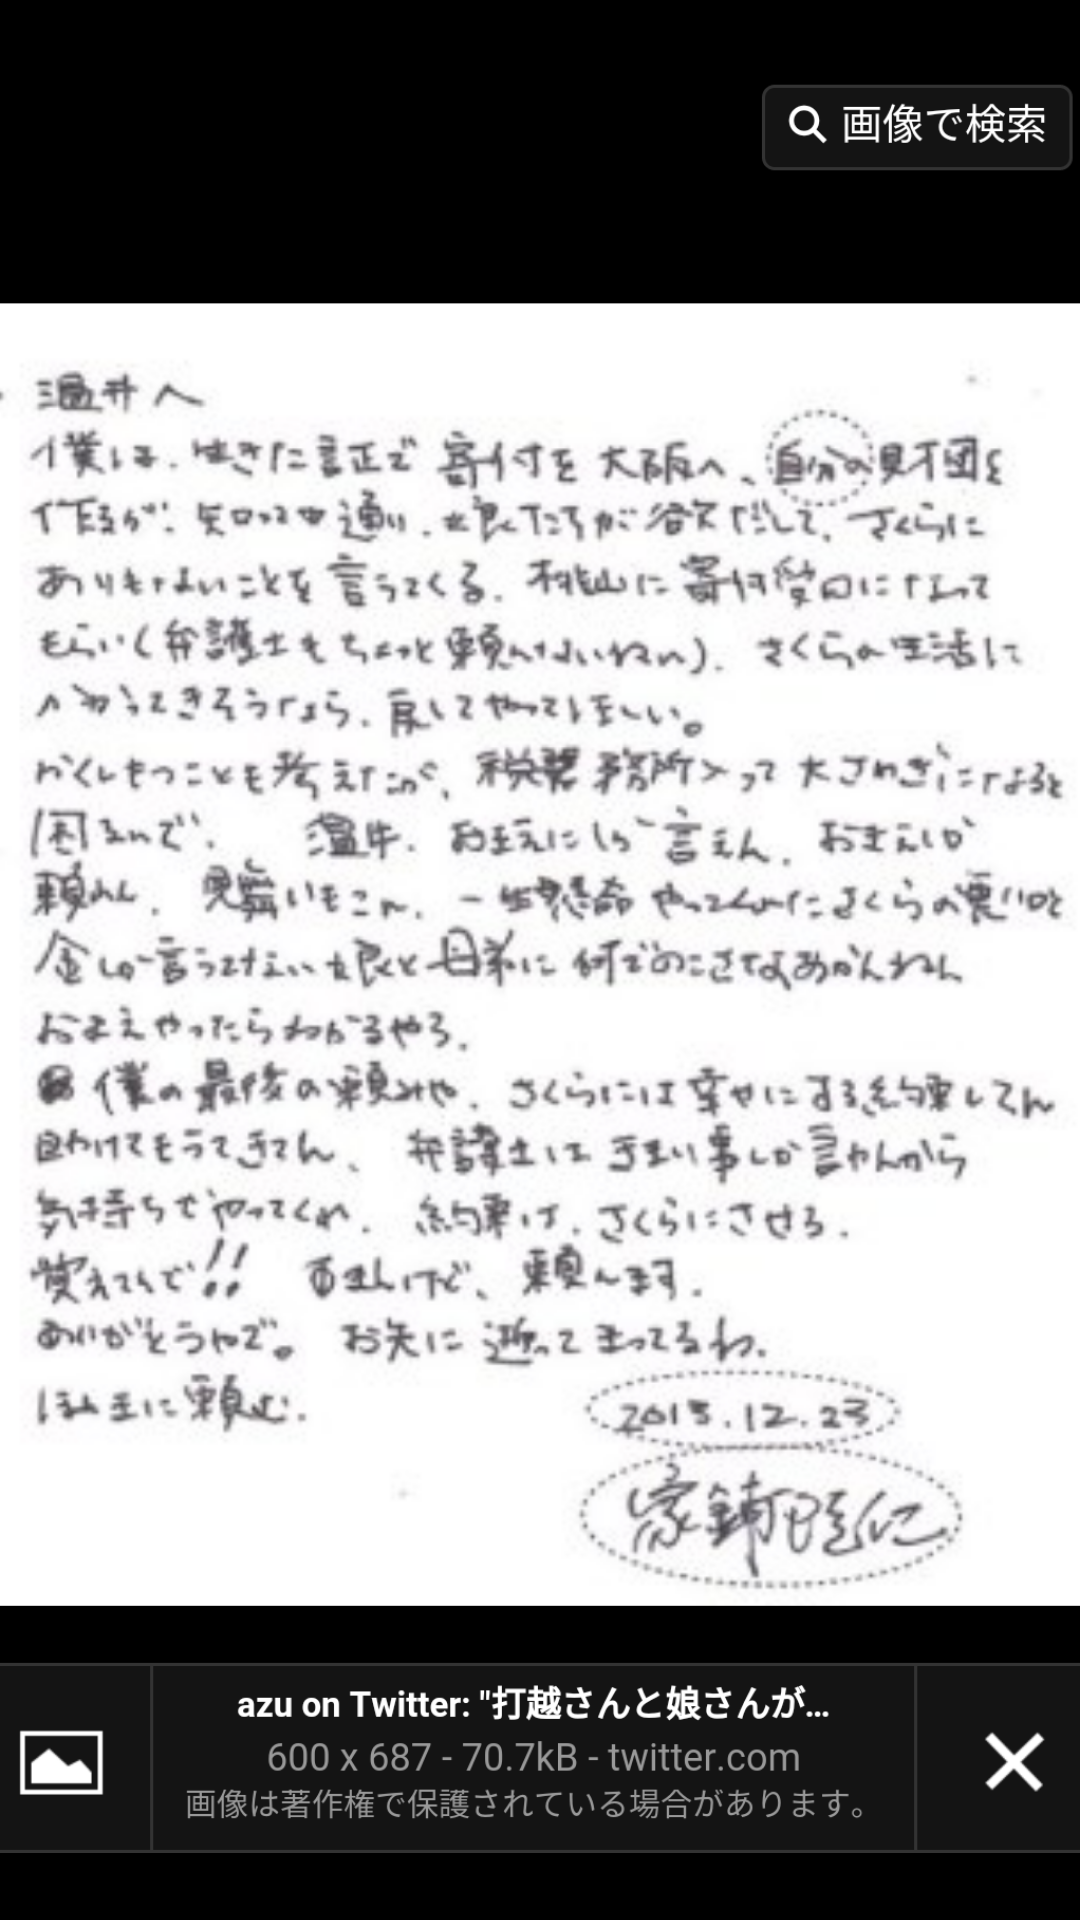 画像で検索
温井へ
僕は、生きた証正で 寄付を 大阪へ、自分の財団を
作るが、知っての通り、娘たちが欲だして、さくらに
ありもしないことを言うてくる。桃山に寄付受口になって
もらい(弁護士もちょっと頼んないねん)、さくらの生活に
かわってきそうなら、戻してやってほしい。
かくしもつことも考えたが、税務所入って大さわぎになると
困るんで、 温井、おまえにしか言えん。おまえしか
頼れん。見舞いもこん、一生懸命やってくれたさくらの悪口と
金しか言うてけえへん娘と母弟に何でのこさなあかんねん
おまえやったらわかるやろ。
僕の最後の頼みや、さくらには幸せにする約束してん
助けてもうてきてん、弁護士は手まい事しか言わんから
気持ちでやってくれ。約束は、さくらにさせろ。
覚えてんで!! 頼んます。
ありがとうやで。お先に逝ってまってるわ。
ほんまに頼む。
2015.12.23
家鋪隆仁
azu on Twitter: "打越さんと娘さんが...
600 x 687 - 70.7kB - twitter.com
画像は著作権で保護されている場合があります。